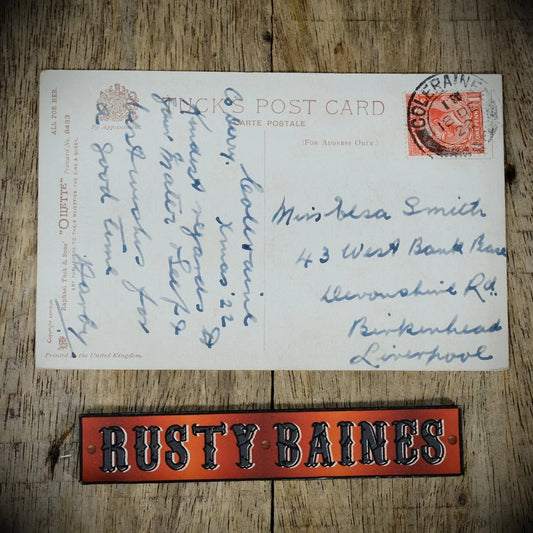 TUCK'S POST CARD
CARTE POSTALE
(FOR ADDRESS ONLY)
By Appointment
ALL FOR HER.
"OILETTE" Postcard No. 8493
Raphael Tuck & Sons'
ART PUBLISHERS TO THEIR MAJESTIES THE KING & QUEEN.
Copyright London.
Printed in the United Kingdom.
COLERAINE
Coleraine
Xmas '22
Kindest regards to
best wishes for
a good time
Miss Elsa Smith
43 West Bank
Devonshire Rd.
Birkenhead
Liverpool
RUSTY BAINES